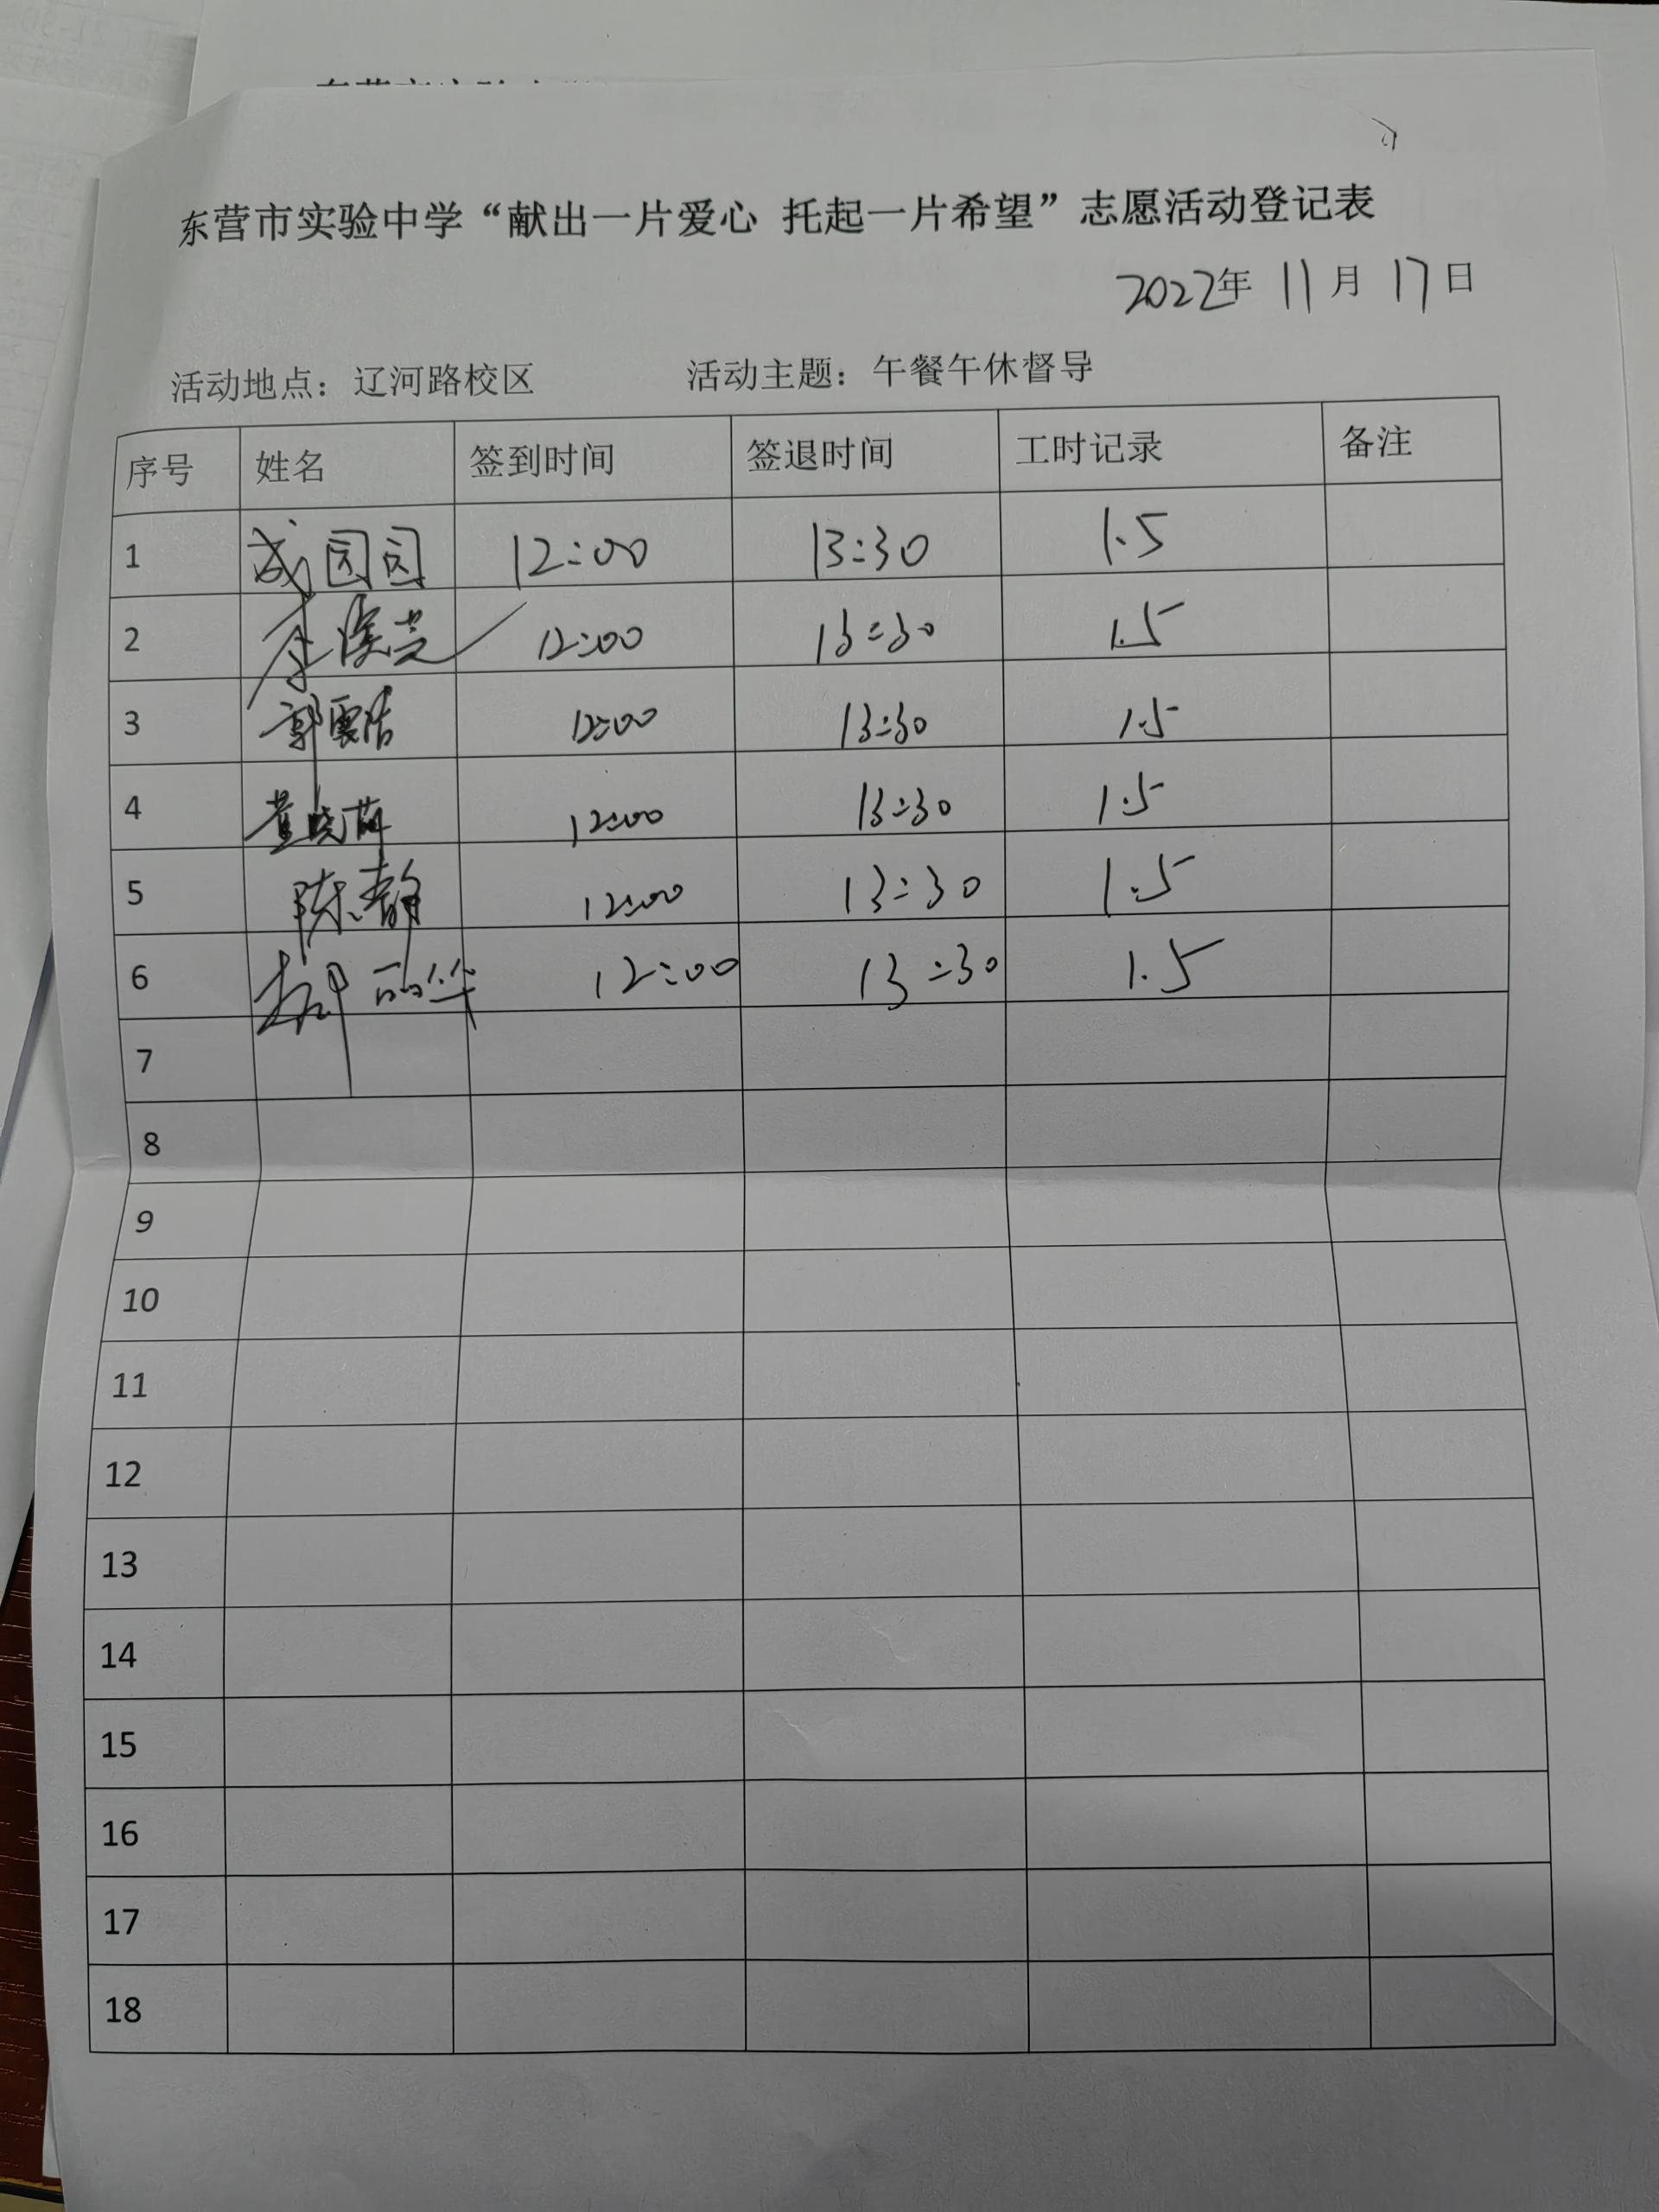 东营市实验中学“献出一片爱心 托起一片希望”志愿活动登记表
2022年 11月 17日
活动地点：辽河路校区 活动主题：午餐午休督导
序号 姓名 签到时间 签退时间 工时记录 备注
1 成园园 12:00 13:30 1.5
2 12:00 13:30 1.5
3 郭震洁 12:00 13:30 1.5
4 董晓茹 12:00 13:30 1.5
5 陈静 12:00 13:30 1.5
6 丽华 12:00 13:30 1.5
7
8
9
10
11
12
13
14
15
16
17
18